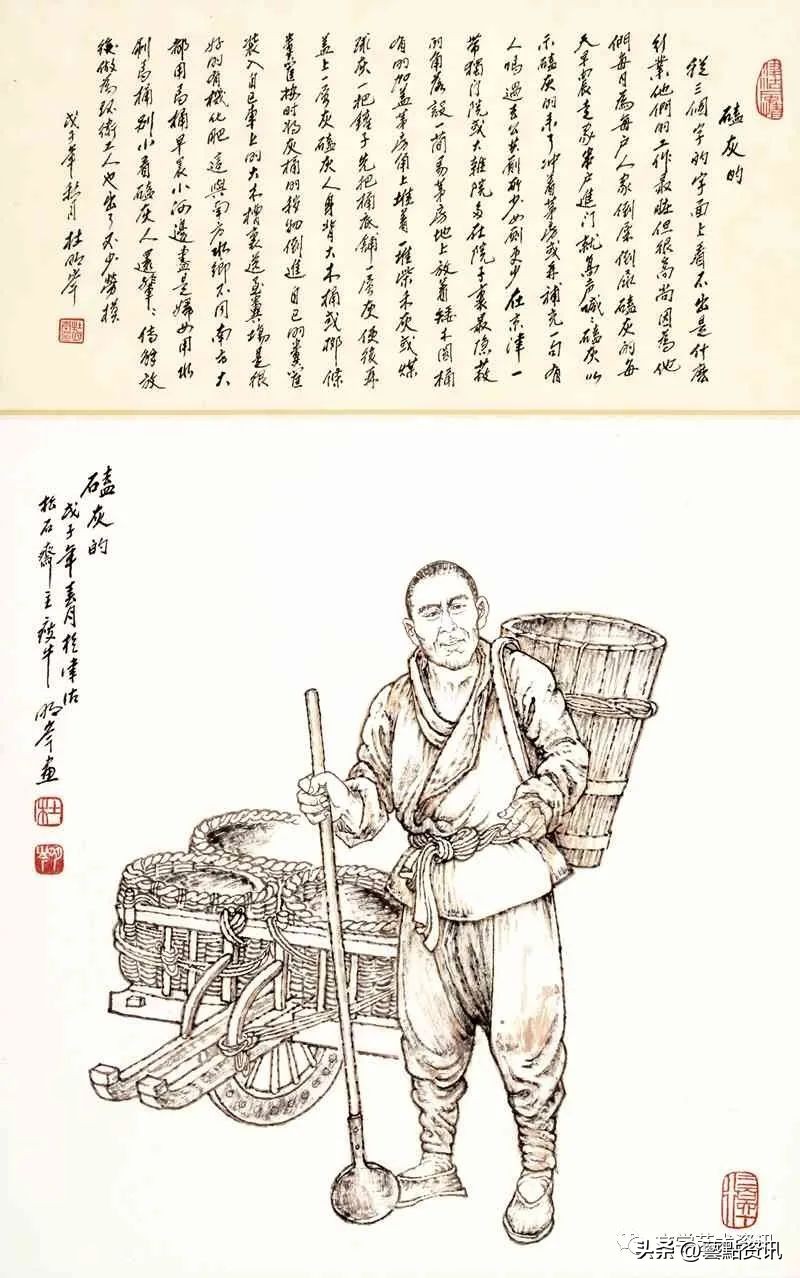 磕灰的
從三個字的字面上看不出是什麼
行業他們的工作最賍但很高尚因為他
們每日為每戶人家倒屎倒尿磕灰的每
天早晨走家串戶進門就高声喊磕灰以
示磕灰的来了冲着茅房或再補充一句有
人嗎過去公共厠所少女厠更少在京津一
帶獨门院或大雜院多在院子裏最隐蔽
的角落設一简易茅房地上放着矮木圆桶
有的加盖茅房角上堆着一堆柴木灰或煤
球灰一把鏟子先把桶底鋪一層灰便後再
盖上一層灰磕灰人身背大木桶或柳條
糞筐按时将灰桶的秽物倒進自己的糞筐
裝入自己車上的大木槽裏送至糞場是很
好的有機化肥這與南方水鄉不同南方大
都用馬桶早晨小河邊盡是婦女用水
刷馬桶别小看磕灰人還解放
後做為环衛工人也出了不少勞模
戊子年秋月杜明岑
磕灰的
戊子年春月於津沽
松石齋主瘦牛明岑画
头条@藝點资讯